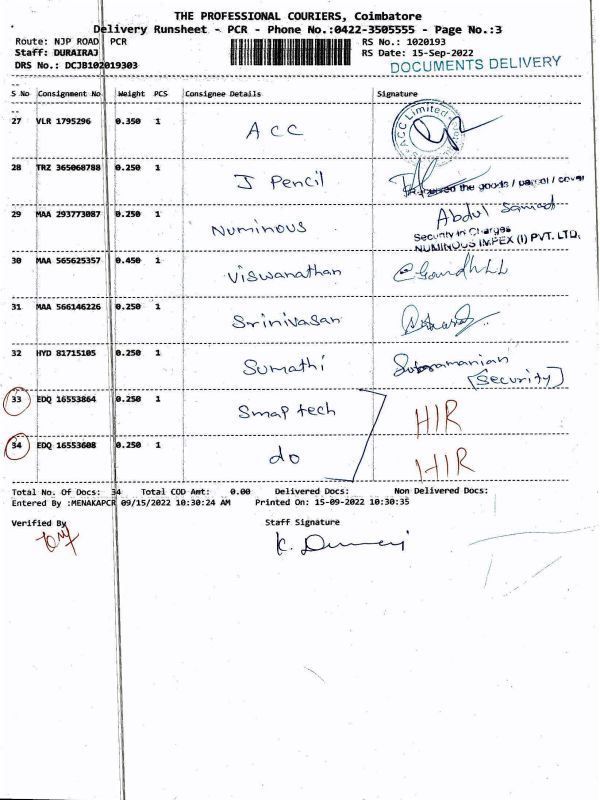 THE PROFESSIONAL COURIERS, Coimbatore
Delivery Runsheet - PCR - Phone No.:0422-3505555 - Page No.:3
Route: NJP ROAD PCR RS No.: 1020193
Staff: DURAIRAJ RS Date: 15-Sep-2022
DRS No.: DCJB102019303 DOCUMENTS DELIVERY
S No Consignment No Weight PCS Consignee Details Signature
27 VLR 1795296 0.350 1 ACC ACC Limited
28 TRZ 365068788 0.250 1 J Pencil
the goods / parcel / cover
29 MAA 293773087 0.250 1 Numinous Abdul Samad
Security in Charges
NUMINOUS IMPEX (I) PVT. LTD.
30 MAA 565625357 0.450 1 Viswanathan
31 MAA 566146226 0.250 1 Srinivasan
32 HYD 81715105 0.250 1 Sumathi Subramanian
[Security]
33 EDQ 16553864 0.250 1 Smap tech HIR
34 EDQ 16553608 0.250 1 do HIR
Total No. Of Docs: 34 Total COD Amt: 0.00 Delivered Docs: Non Delivered Docs:
Entered By :MENAKAPCR 09/15/2022 10:30:24 AM Printed On: 15-09-2022 10:30:35
Verified By Staff Signature